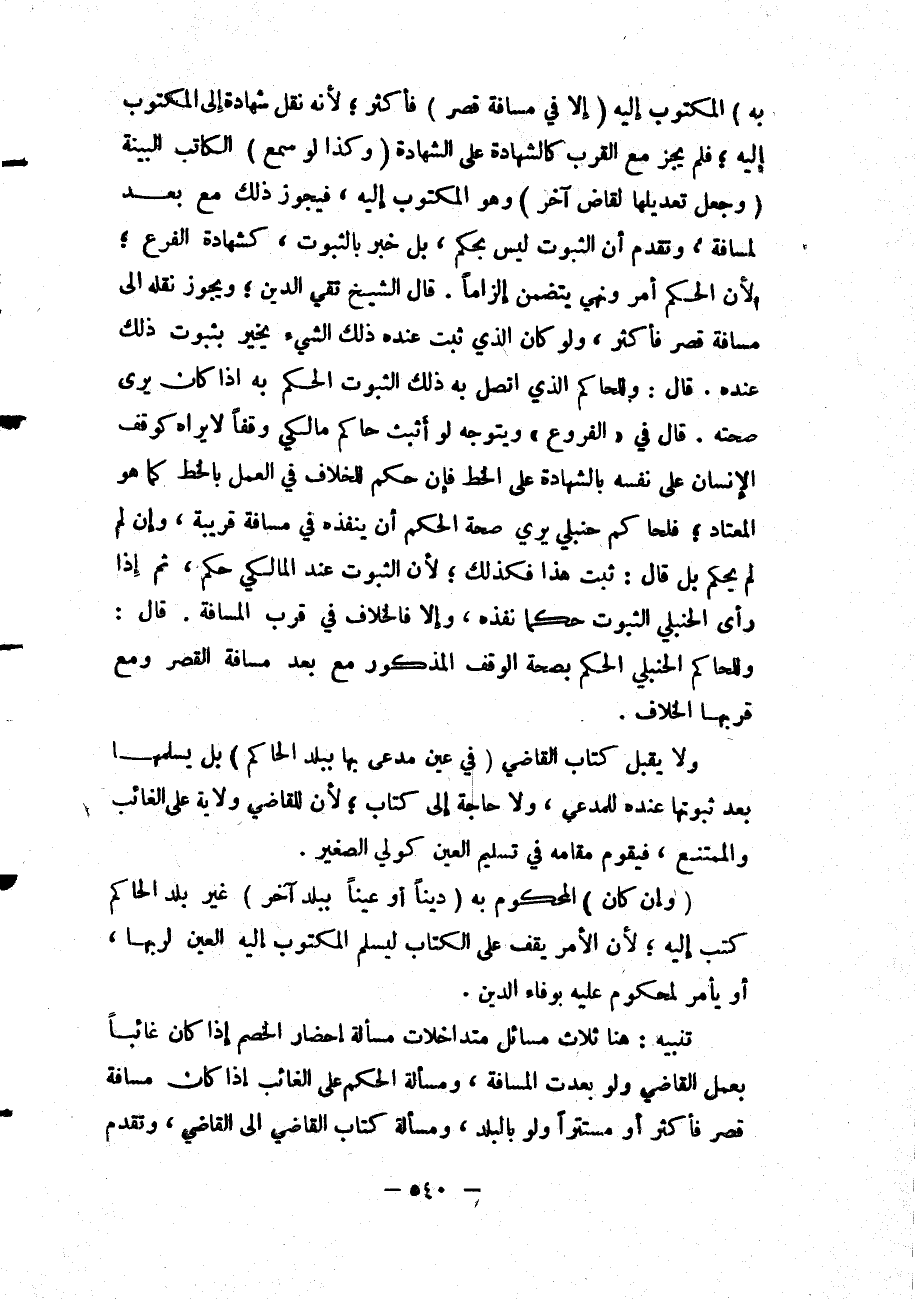 به ) المكتوب إليه ( إلا في مسافة قصر ) فأكثر ؛ لأنه نقل شهادة إلى المكتوب
إليه ؛ فلم يجز مع القرب كالشهادة على الشهادة ( وكذا لو سمع ) الكاتب البينة
( وجعل تعديلها لقاض آخر ) وهو المكتوب إليه ، فيجوز ذلك مع بعـــد
لمسافة ، وتقدم أن الثبوت ليس بحكم ، بل خبر بالثبوت ، كشهادة الفرع ؛
لأن الحكم أمر ونهي يتضمن إلزاماً . قال الشيخ تقي الدين ؛ ويجوز نقله الى
مسافة قصر فأكثر ، ولو كان الذي ثبت عنده ذلك الشيء يخبر بثبوت ذلك
عنده . قال : وللحاكم الذي اتصل به ذلك الثبوت الحكم به اذا كان يرى
صحته . قال في « الفروع » ويتوجه لو أثبت حاكم مالكي وقفاً لا يراه كوقف
الإنسان على نفسه بالشهادة على الخط فإن حكم للخلاف في العمل بالخط كما هو
المعتاد ؛ فلحاكم حنبلي يري صحة الحكم أن ينفذه في مسافة قريبة ، وإن لم
لم يحكم بل قال : ثبت هذا فكذلك ؛ لأن الثبوت عند المالكي حكم ، ثم إذا
رأى الحنبلي الثبوت حكما نفذه ، وإلا فالخلاف في قرب المسافة . قال :
وللحاكم الحنبلي الحكم بصحة الوقف المذكور مع بعد مسافة القصر ومع
قربها الخلاف .
ولا يقبل كتاب القاضي ( في عين مدعى بها ببلد الحاكم ) بل يسلمهـــا
بعد ثبوتها عنده للمدعي ، ولا حاجة إلى كتاب ؛ لأن للقاضي ولاية على الغائب
والممتنع ، فيقوم مقامه في تسليم العين كولي الصغير .
( وإن كان ) المحكوم به ( ديناً أو عيناً ببلد آخر ) غير بلد الحاكم
كتب إليه ؛ لأن الأمر يقف على الكتاب ليسلم المكتوب إليه العين لربها ،
أو يأمر لمحكوم عليه بوفاء الدين .
تنبيه : هنا ثلاث مسائل متداخلات مسألة احضار الخصم إذا كان غائبـاً
بعمل القاضي ولو بعدت المسافة ، ومسألة الحكم على الغائب إذا كان مسافة
قصر فأكثر أو مستتراً ولو بالبلد ، ومسألة كتاب القاضي الى القاضي ، وتقدم
— ٥٤٠ —